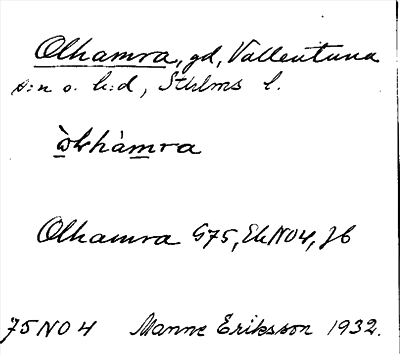 Olhamra, gd, Vallentuna
s:n o. h:d, Sthlms l.
Olhamra G75, Ek NO4, Jb
75 NO 4 Manne Eriksson 1932.